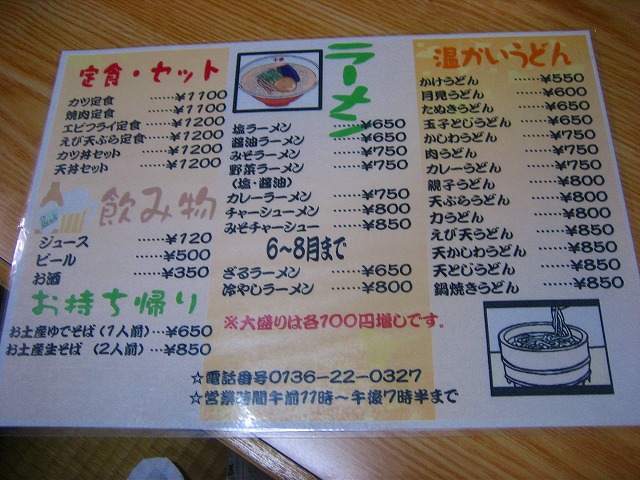 定食・セット
カツ定食 ……¥1100
焼肉定食 ……¥1100
エビフライ定食 ……¥1200
えび天ぷら定食 ……¥1200
カツ丼セット ……¥1200
天丼セット ……¥1200
飲み物
ジュース ……¥120
ビール ……¥500
お酒 ……¥350
お持ち帰り
お土産ゆでそば（1人前）…¥650
お土産生そば （2人前）…¥850
ラーメン
塩ラーメン ……¥650
醤油ラーメン ……¥650
みそラーメン ……¥750
野菜ラーメン ……¥750
（塩・醤油）
カレーラーメン ……¥750
チャーシューメン ……¥800
みそチャーシュー ……¥850
6～8月まで
ざるラーメン ……¥650
冷やしラーメン ……¥800
※大盛りは各100円増しです。
温かいうどん
かけうどん ……¥550
月見うどん ……¥600
たぬきうどん ……¥650
玉子とじうどん ……¥650
かしわうどん ……¥750
肉うどん ……¥750
カレーうどん ……¥750
親子うどん ……¥800
天ぷらうどん ……¥800
力うどん ……¥800
えび天うどん ……¥850
天かしわうどん ……¥850
天とじうどん ……¥850
鍋焼きうどん ……¥850
☆電話番号0136－22－0327
☆営業時間午前11時～午後7時半まで